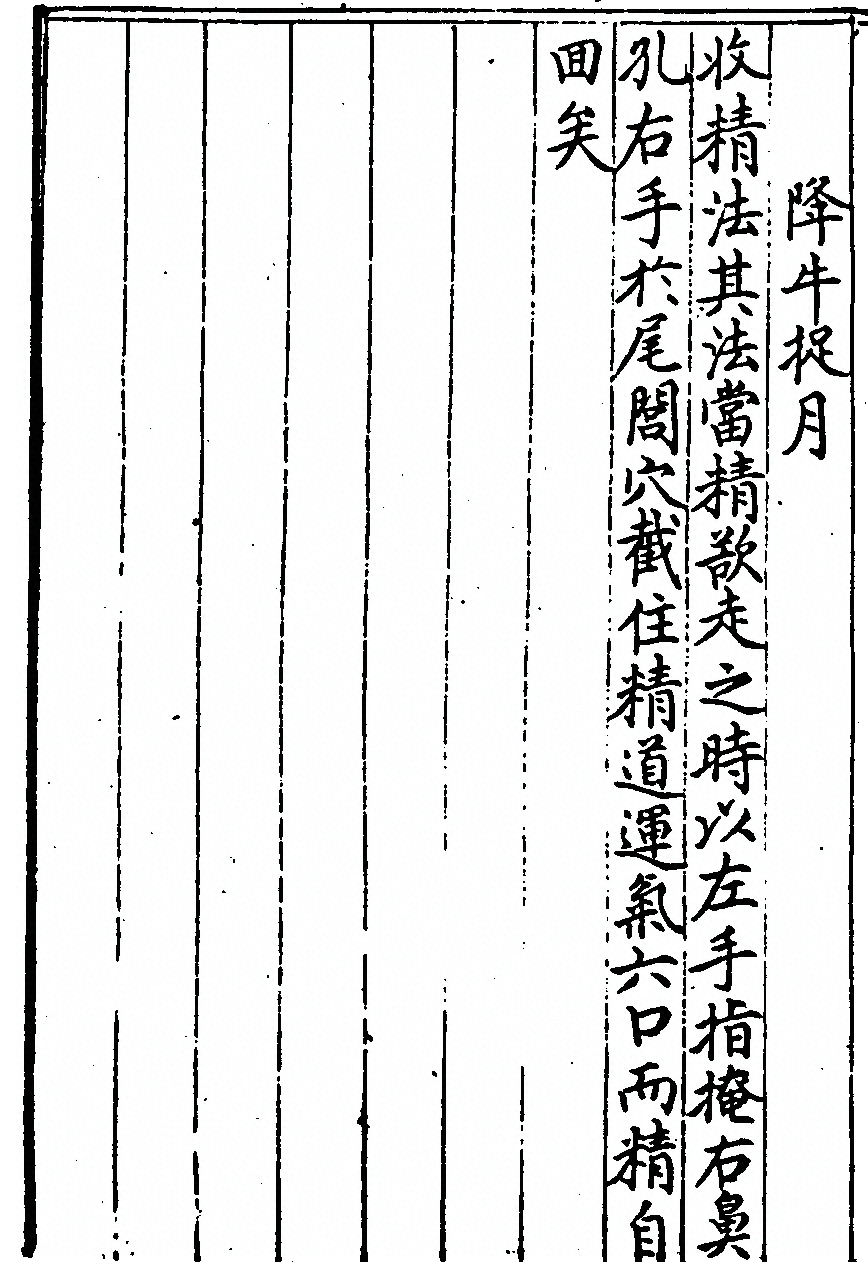 降牛捉月
收精法其法當精欲走之時以左手指掩右鼻
孔右手於尾閭穴截住精道運氣六口而精自
囬矣